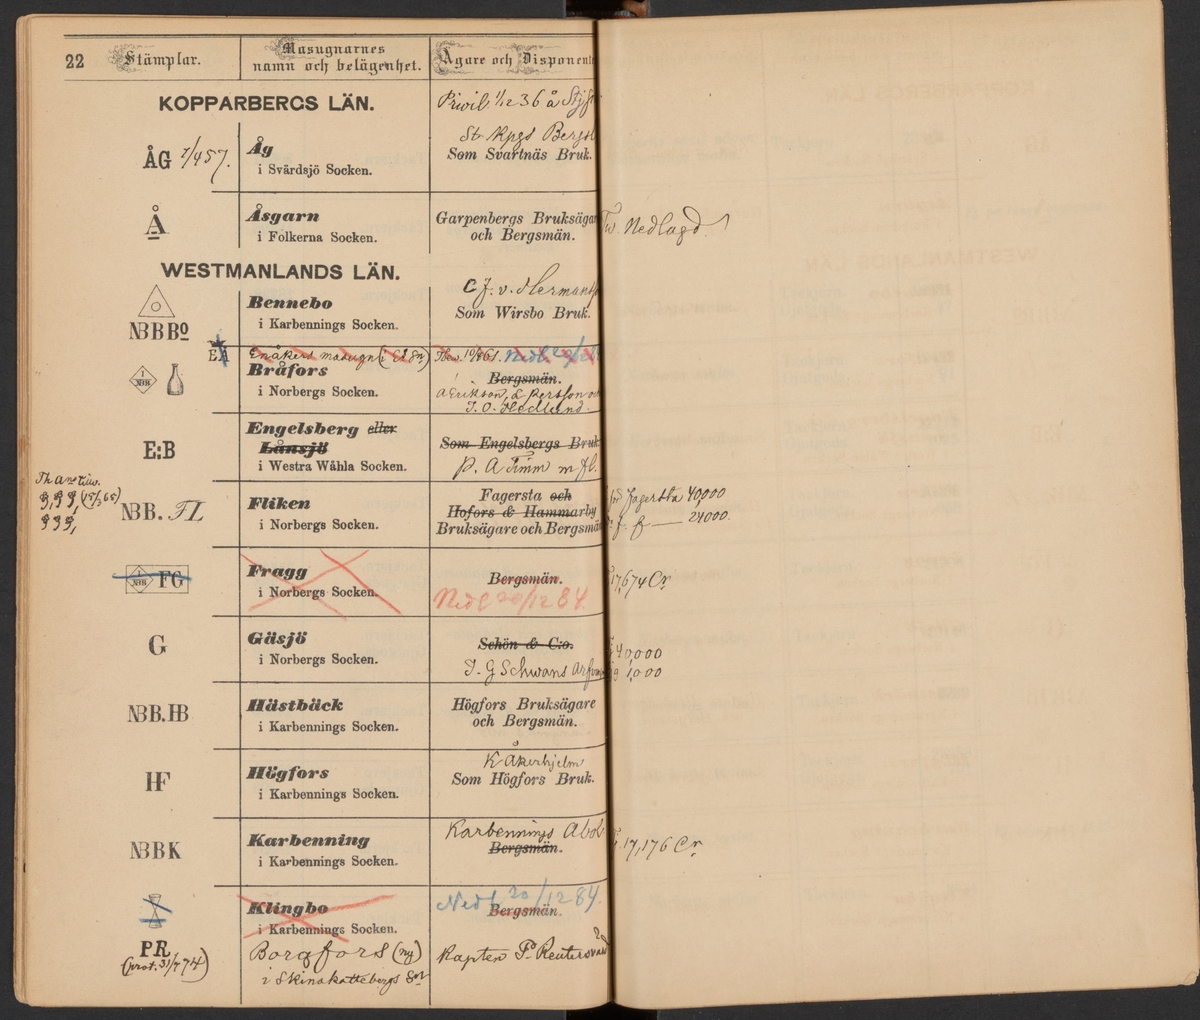 22 Stämplar. Masugnarnes namn och belägenhet. Ägare och Disponente
KOPPARBERGS LÄN. Privil 1/12 36 å
St. Kpgs Bergsl
ÅG 7/4 57. Åg Som Svartnäs Bruk.
i Svärdsjö Socken.
Å Åsgarn Garpenbergs Bruksägar Nedlagd
i Folkerna Socken. och Bergsmän.
WESTMANLANDS LÄN.
C. J. v. Hermans
NBBBo Bennebo Som Wirsbo Bruk.
i Karbennings Socken.
EÅ Enåkers masugn
Bråfors Bergsmän.
i Norbergs Socken. A Erikson, L. Persson oc
J. O. Hedlund.
E:B Engelsberg eller Som Engelsbergs Bruk
Långsjö P. A Timm m fl.
i Westra Wåhla Socken.
(15/3 65)
NBB. TL Fliken Fagersta och Fagersta 40,000
i Norbergs Socken. Hofors & Hammarby 24000.
Bruksägare och Bergsmän
1 NBB FG Fragg Bergsmän. 17,674 Cr
i Norbergs Socken. Nedl 20/12 84.
G Gäsjö Schön & C:o. 40,000
i Norbergs Socken. J. G Schwans Arfvin 1,000
NBB.HB Hästbäck Högfors Bruksägare
i Karbennings Socken. och Bergsmän.
K Åkerhjelm
HF Högfors Som Högfors Bruk.
i Karbennings Socken.
Karbennings Abol
NBBK Karbenning Bergsmän. 17,176 Cr
i Karbennings Socken.
Nedl 20/12 84.
Klingbo Bergsmän.
i Karbennings Socken.
PR Borgfors (ny) Kapten P. Reutersvärd
(prot. 31/7 74) i Skinskattebergs Sn